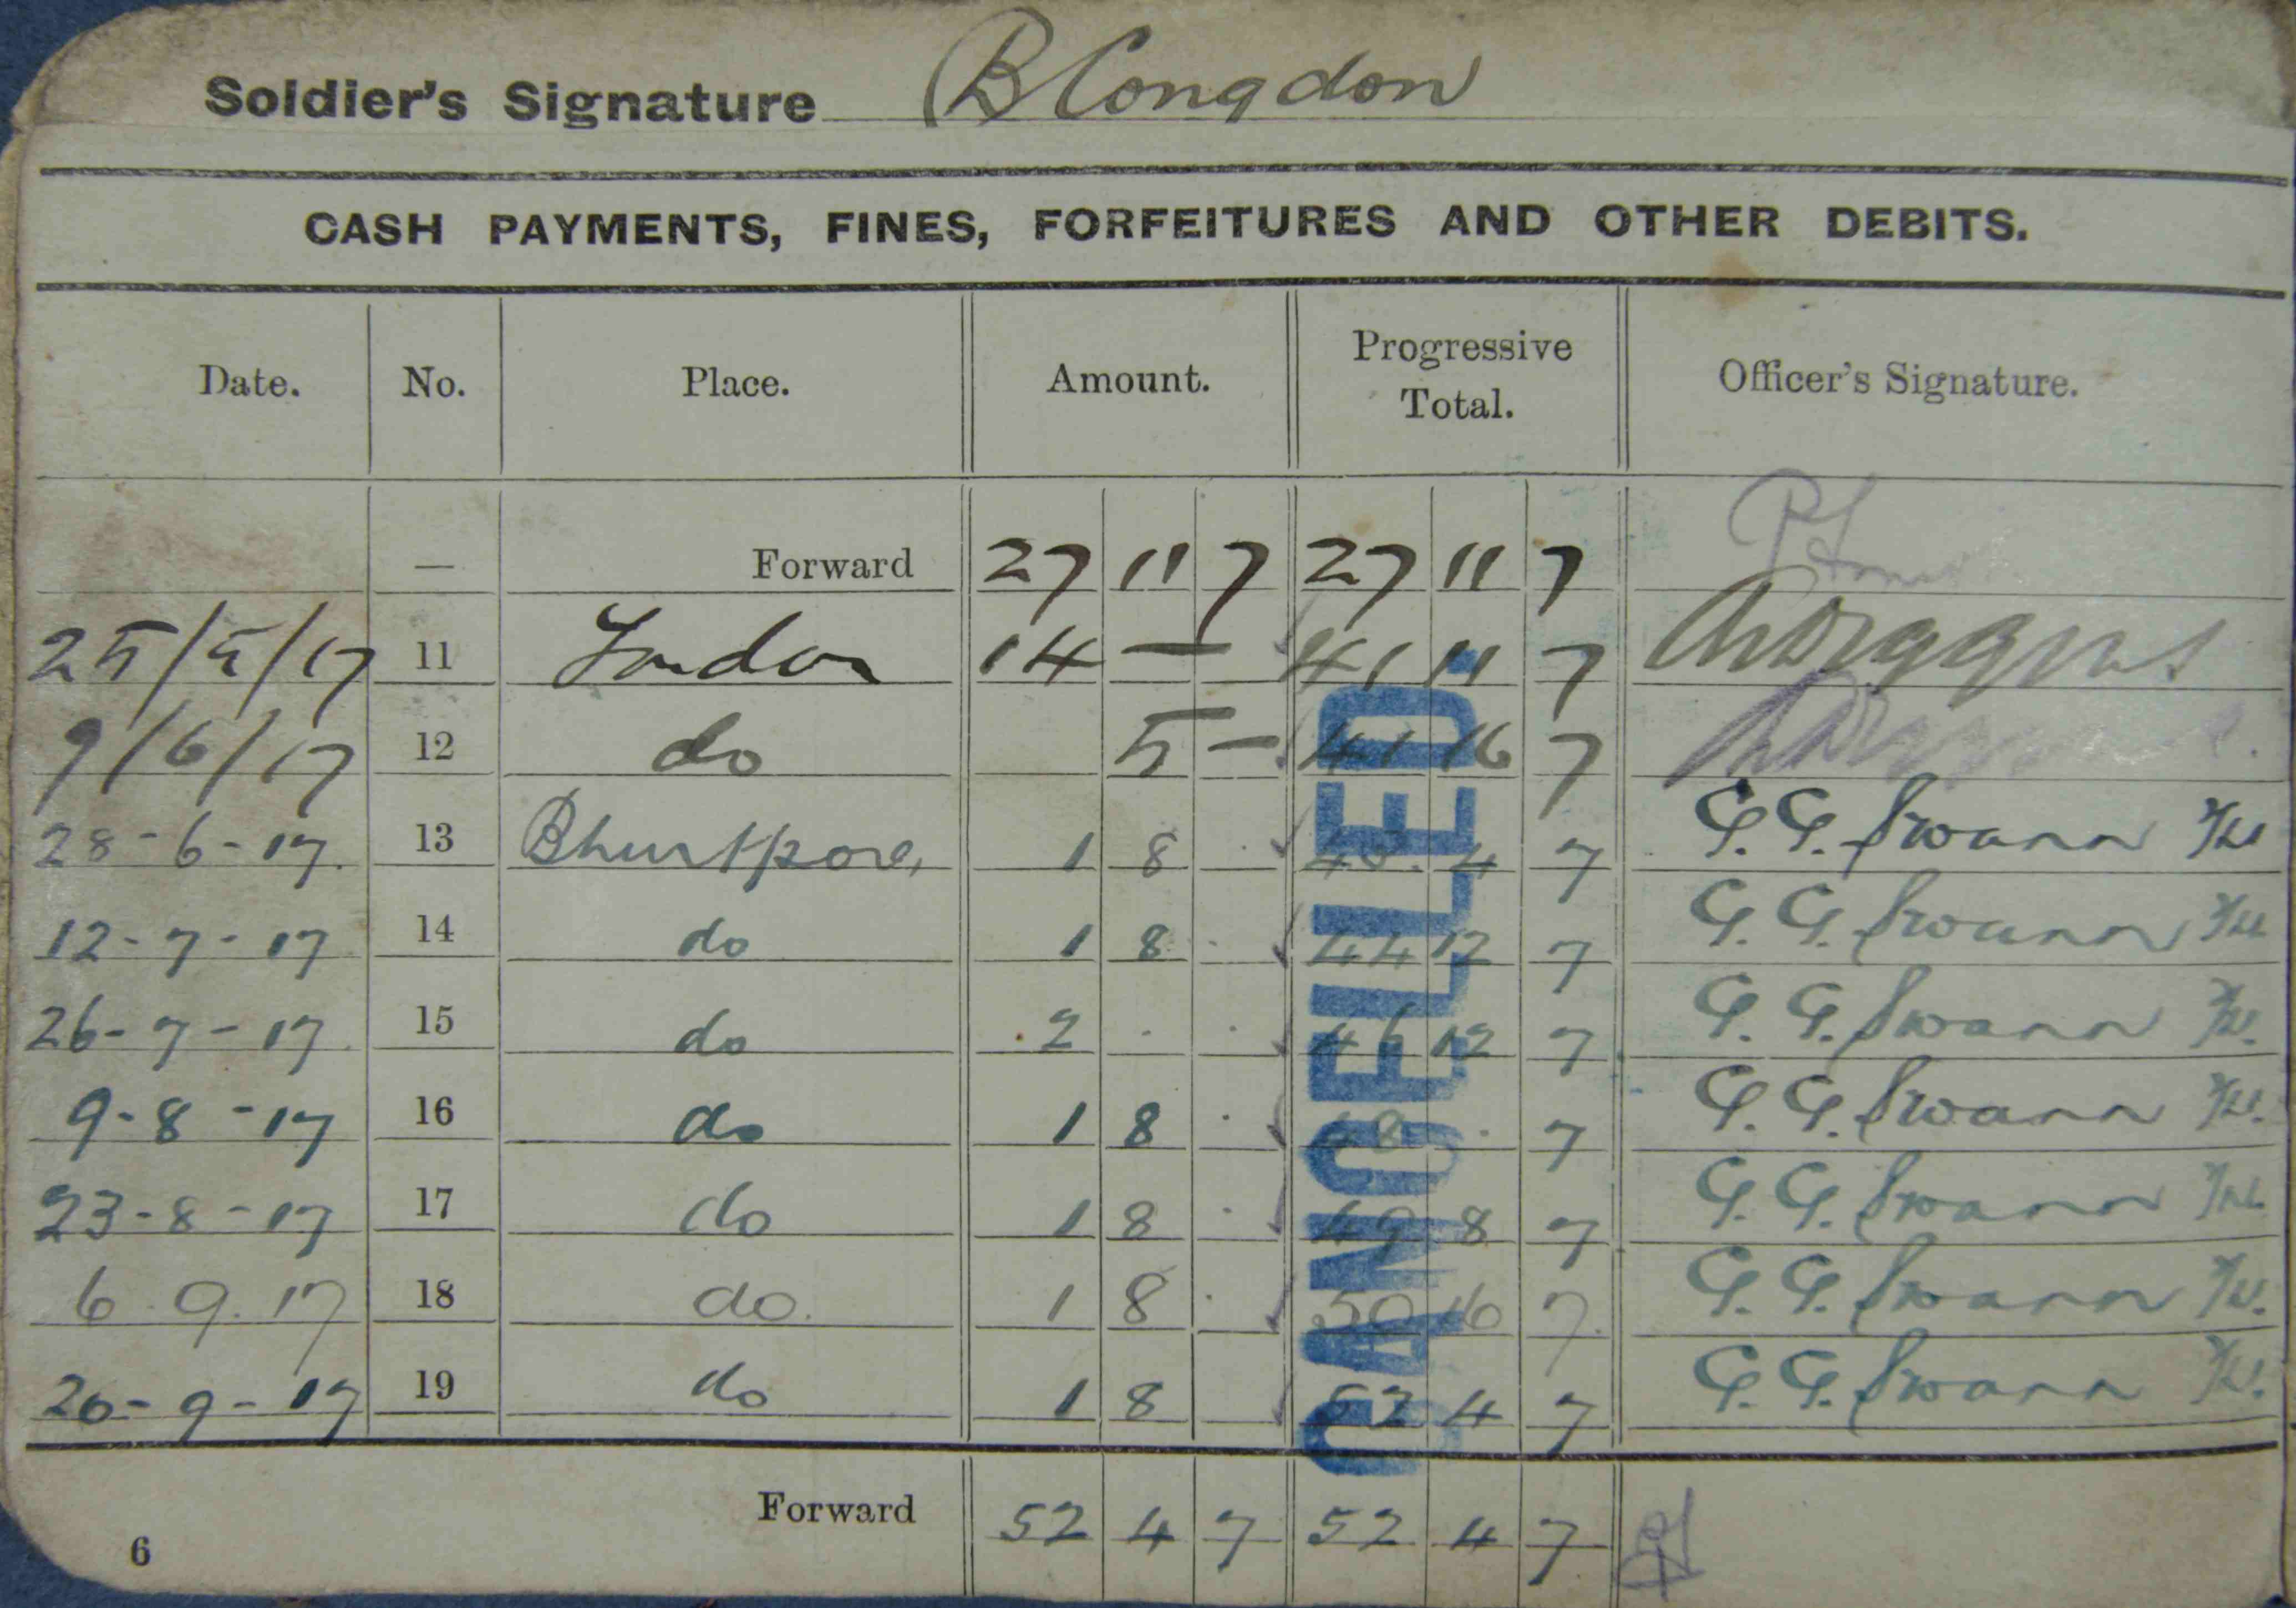 Soldier's Signature B Congdon
CASH PAYMENTS, FINES, FORFEITURES AND OTHER DEBITS.
Date. No. Place. Amount. Progressive Total. Officer's Signature.
— Forward 27 11 7 27 11 7
25/5/17 11 London 14 — 41 11 7
9/6/17 12 do 5 — 41 16 7
28-6-17. 13 Bhurtpore, 1 8 . 43. 4 7 G. G. Swann
12-7-17 14 do 1 8 . 44 12 7 G. G. Swann
26-7-17. 15 do 2 . . 46 12 7 G. G. Swann
9-8-17 16 do 1 8 . 48 . 7 G. G. Swann
23-8-17 17 do 1 8 . 49 8 7 G. G. Swann
6.9.17 18 do. 1 8 . 50 16 7. G. G. Swann
20-9-17 19 do 1 8 52 4 7 G. G. Swann
CANCELLED.
Forward 52 4 7 52 4 7
6